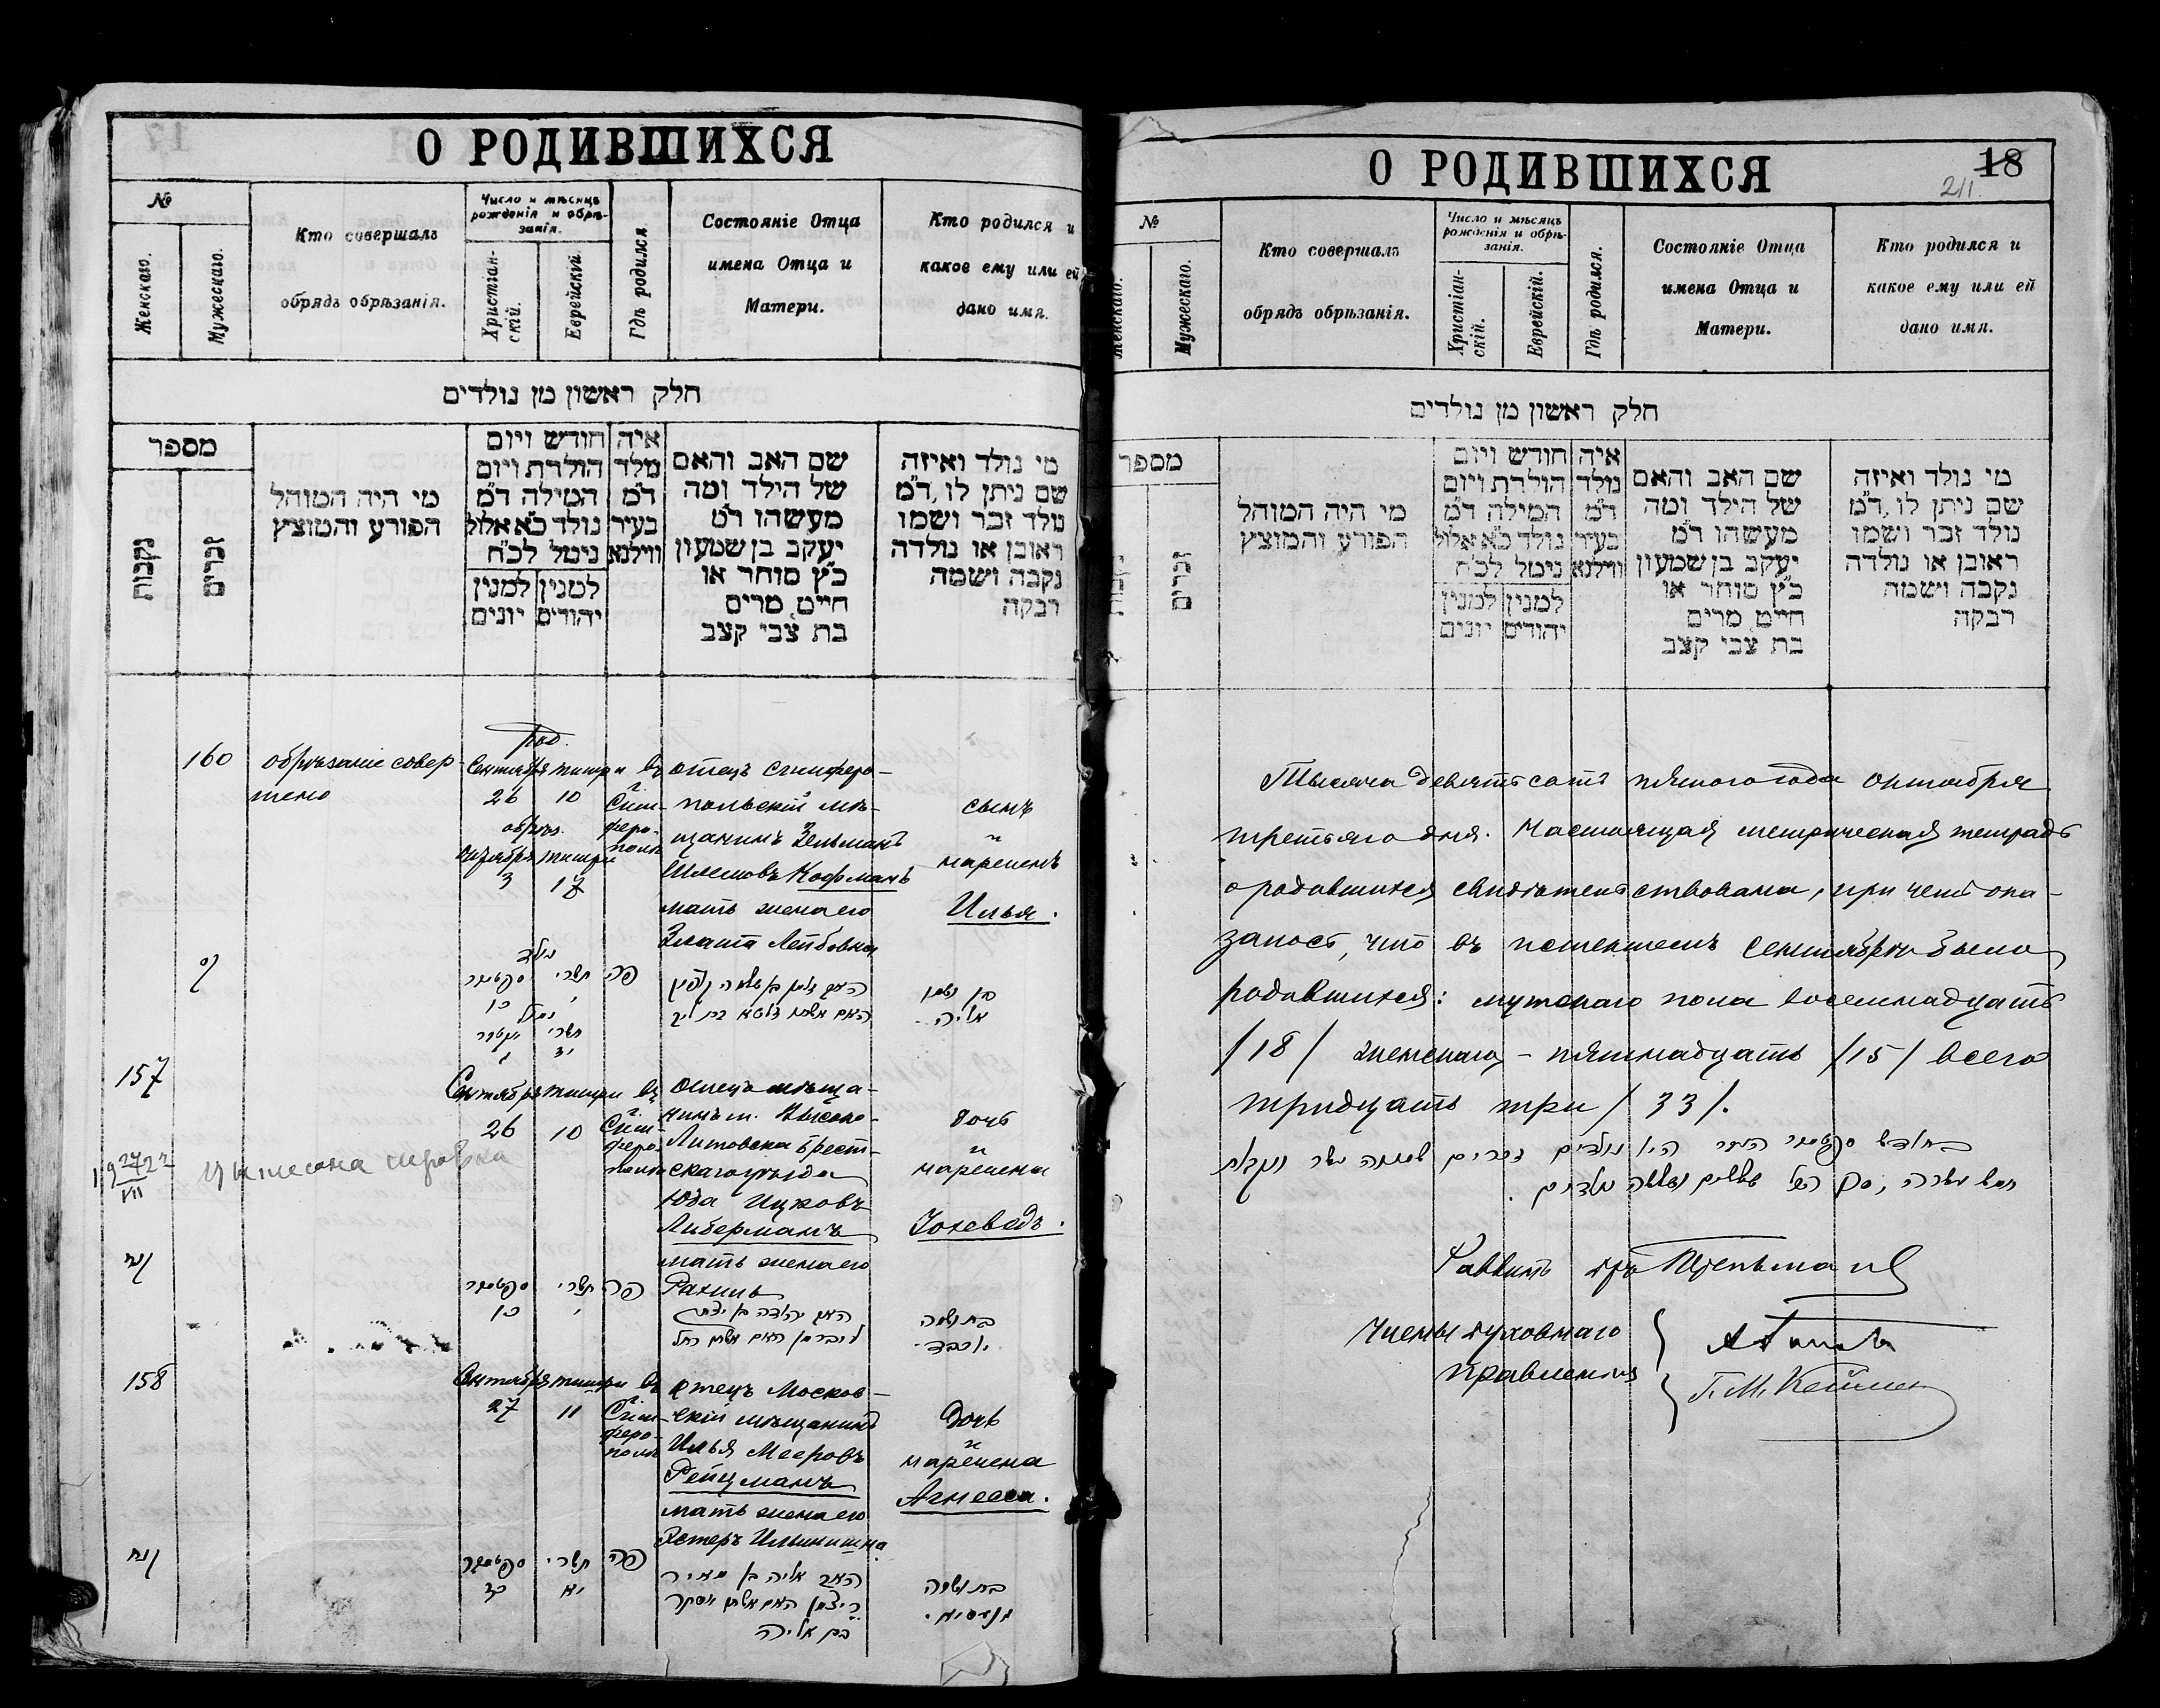 О РОДИВШИХСЯ
№
Женскаго.
Мужескаго.
Кто совершалъ
обрядъ обрѣзанія.
Число и мѣсяцъ
рожденія и обрѣ-
занія.
Христіан-
скій.
Еврейскій.
Гдѣ родился.
Состояніе Отца
имена Отца и
Матери.
Кто родился и
какое ему или ей
дано имя.
חלק ראשון מן נולדים
מספר
נקבות
זכרים
מי היה המוהל
הפורע והמוצץ
חודש ויום
הולדת ויום
המילה ד״מ
נולד כ״א אלול
נימל לכ״ח
למנין
יהודים
למנין
יונים
איה
נולד
ד״מ
בעיר
ווילנא
שם האב והאם
של הילד ומה
מעשהו ד״מ
יעקב בן שמעון
כ״ץ סוחר או
חייט מרים
בת צבי קצב
מי נולד ואיזה
שם ניתן לו, ד״מ
נולד זכר ושמו
ראובן או נולדה
נקבה ושמה
רבקה
160
обрѣзаніе совер-
шено
род.
Сентября
26
тишри
10
обрѣз.
октября
3
тишри
17
въ
г.
Сим-
феро-
полѣ
отецъ симферо-
польскій мѣ-
щанинъ Зельманъ
Шлемовъ Кофманъ
мать жена его
Злата Лейбовна
сынъ
и
нареченъ
Илья.
נולד
ספטמבר
כו
תשרי
י
פה
נימול
תשרי
יז
ג
בן ושמו
אליה.
157
Сентября
26
тишри
10
въ
г.
Сим-
феро-
полѣ
отецъ мѣща-
нинъ м. Высоко-
Литовска Брест-
скаго уѣзда
Юда Ицковъ
Либерманъ
мать жена его
Рахиль
дочь
и
наречена
Іохеведъ.
19 27/VII 22
קנז
ספטמבר
כו
תשרי
י
פה
האב יהודה בן יצחק
ליברמן האם אשתו רחל
בת ושמה
יוכבד.
158
Сентября
27
тишри
11
въ
г.
Сим-
феро-
полѣ
отецъ Москов-
скій мѣщанинъ
Илья Мееровъ
Рейцманъ
мать жена его
Эстеръ Ильинишна
дочь
и
наречена
Агнесса.
קנח
ספטמבר
כז
תשרי
יא
פה
האב אליה בן מאיר
רייצמן האם אשתו אסתר
בת אליה
בת ושמה
О РОДИВШИХСЯ
18
211
№
Женскаго.
Мужескаго.
Кто совершалъ
обрядъ обрѣзанія.
Число и мѣсяцъ
рожденія и обрѣ-
занія.
Христіан-
скій.
Еврейскій.
Гдѣ родился.
Состояніе Отца
имена Отца и
Матери.
Кто родился и
какое ему или ей
дано имя.
חלק ראשון מן נולדים
מספר
זכרים
מי היה המוהל
הפורע והמוצץ
חודש ויום
הולדת ויום
המילה ד״מ
נולד כ״א אלול
נימל לכ״ח
למנין
יהודים
למנין
יונים
איה
נולד
ד״מ
בעיר
ווילנא
שם האב והאם
של הילד ומה
מעשהו ד״מ
יעקב בן שמעון
כ״ץ סוחר או
חייט מרים
בת צבי קצב
מי נולד ואיזה
שם ניתן לו, ד״מ
נולד זכר ושמו
ראובן או נולדה
נקבה ושמה
רבקה
Тысяча девятьсотъ пятаго года октября
третьяго дня. Настоящая метрическая тетрадь
о родившихся свидѣтельствована, при чемъ ока-
залось, что въ истекшемъ сентябрѣ было
родившихся: мужскаго пола восемнадцать
/18/ женскаго – пятнадцать /15/ всего
тридцать три /33/.
בחודש ספטמבר העבר היו נולדים זכרים שמונה עשר ונקבות
חמש עשרה, סך הכל שלשים ושלשה נולדים.
Раввинъ
Члены духовнаго
правленія